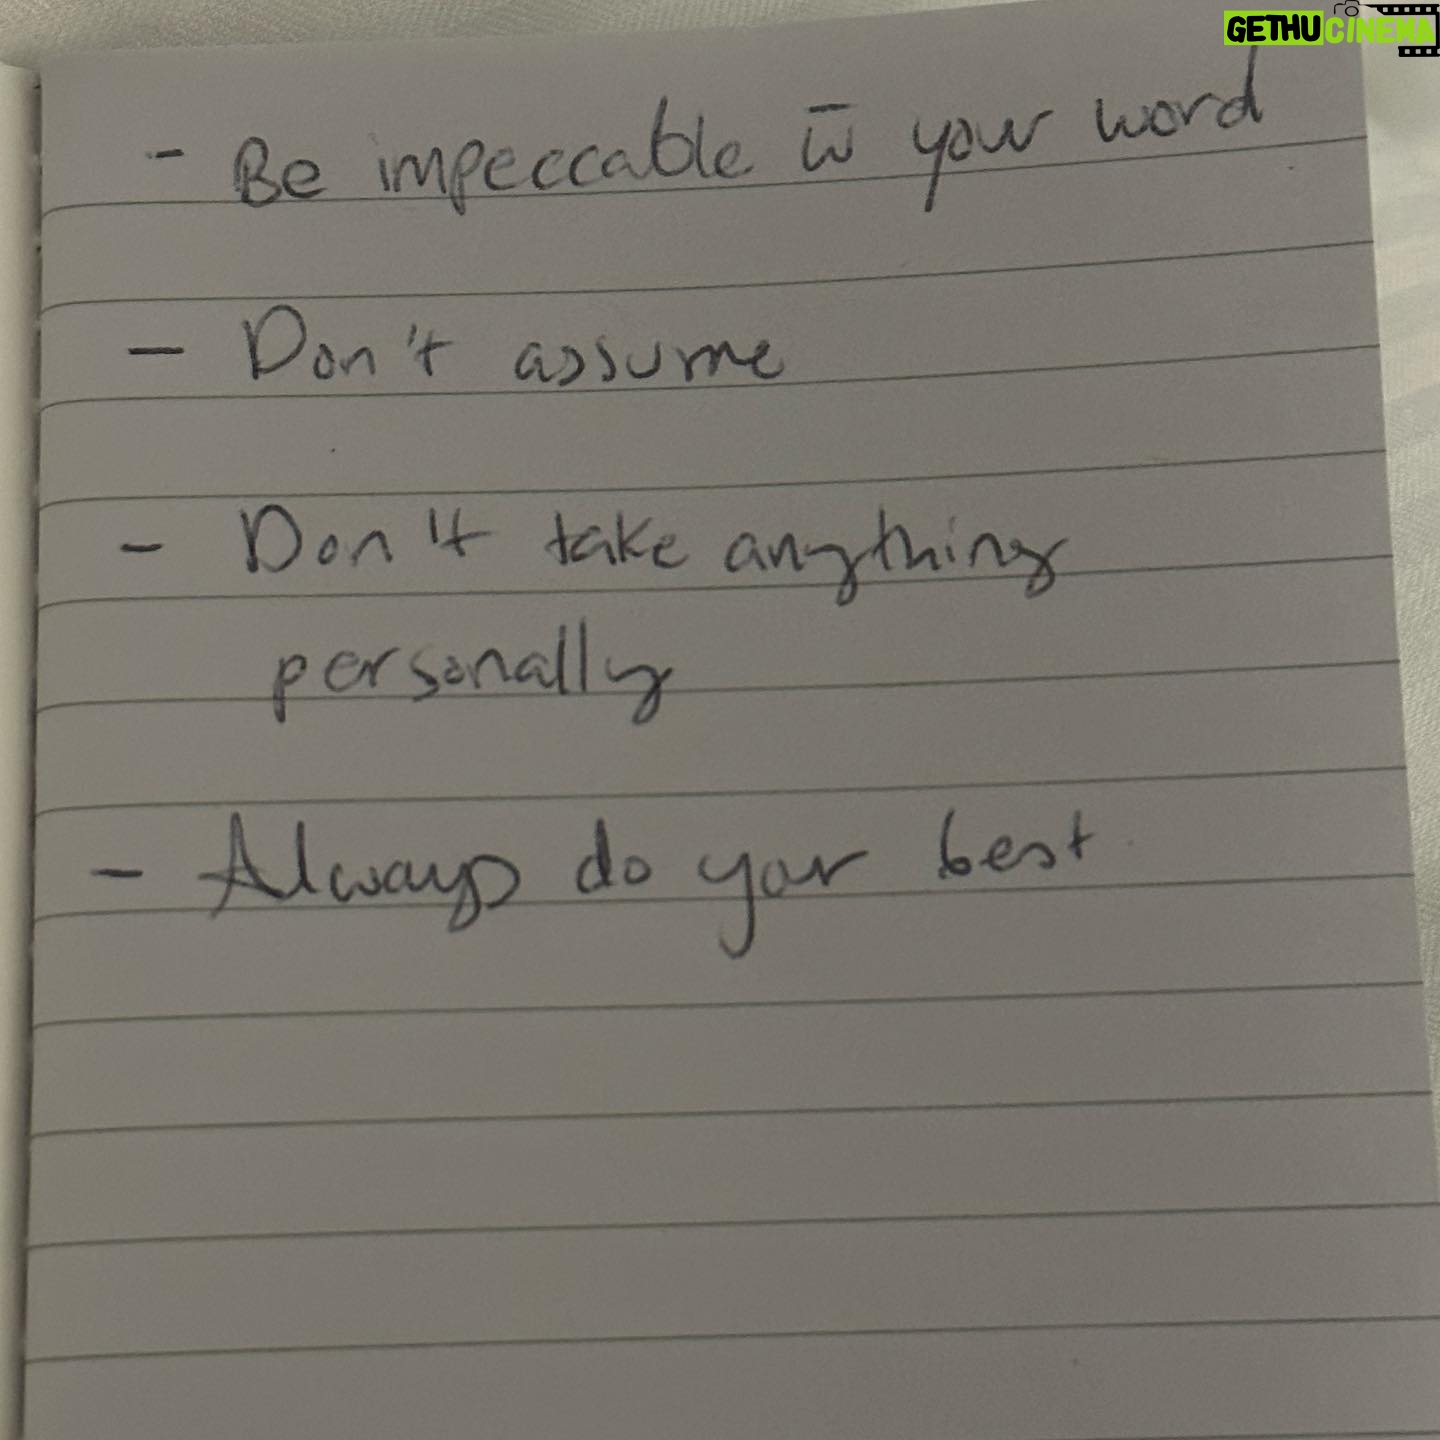 GETHU CINEMA
- Be impeccable w̄ your word
- Don't assume
- Don't take anything
personally
- Always do your best